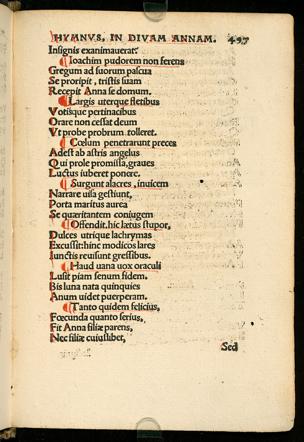 HYMNVS, IN DIVAM ANNAM. 497
Insignis exanimauerat:
¶ Ioachim pudorem non ferens
Gregum ad suorum pascua
Se proripit, tristis suam
Recepit Anna se domum.
¶ Largis uterque fletibus
Votisque pertinacibus
Orare non cessat deum
Vt probe probrum tolleret.
¶ Cœlum penetrarunt preces
Adest ab astris angelus
Qui prole promissa, graues
Luctus iuberet ponere.
¶ Surgunt alacres, inuicem
Narrare uisa gestiunt,
Porta maritus aurea
Se quæritantem coniugem
¶ Offendit, hic lætus stupor,
Dulces utrique lachrymas
Excussit: hinc modicos lares
Iunctis reuisunt gressibus.
¶ Haud uana uox oraculi
Lusit piam senum fidem.
Bis luna nata quinquies
Anum uidet puerperam.
¶ Tanto quidem felicius,
Fœcunda quanto serius,
Fit Anna filiæ parens,
Nec filiæ cuiuslibet,
Sed